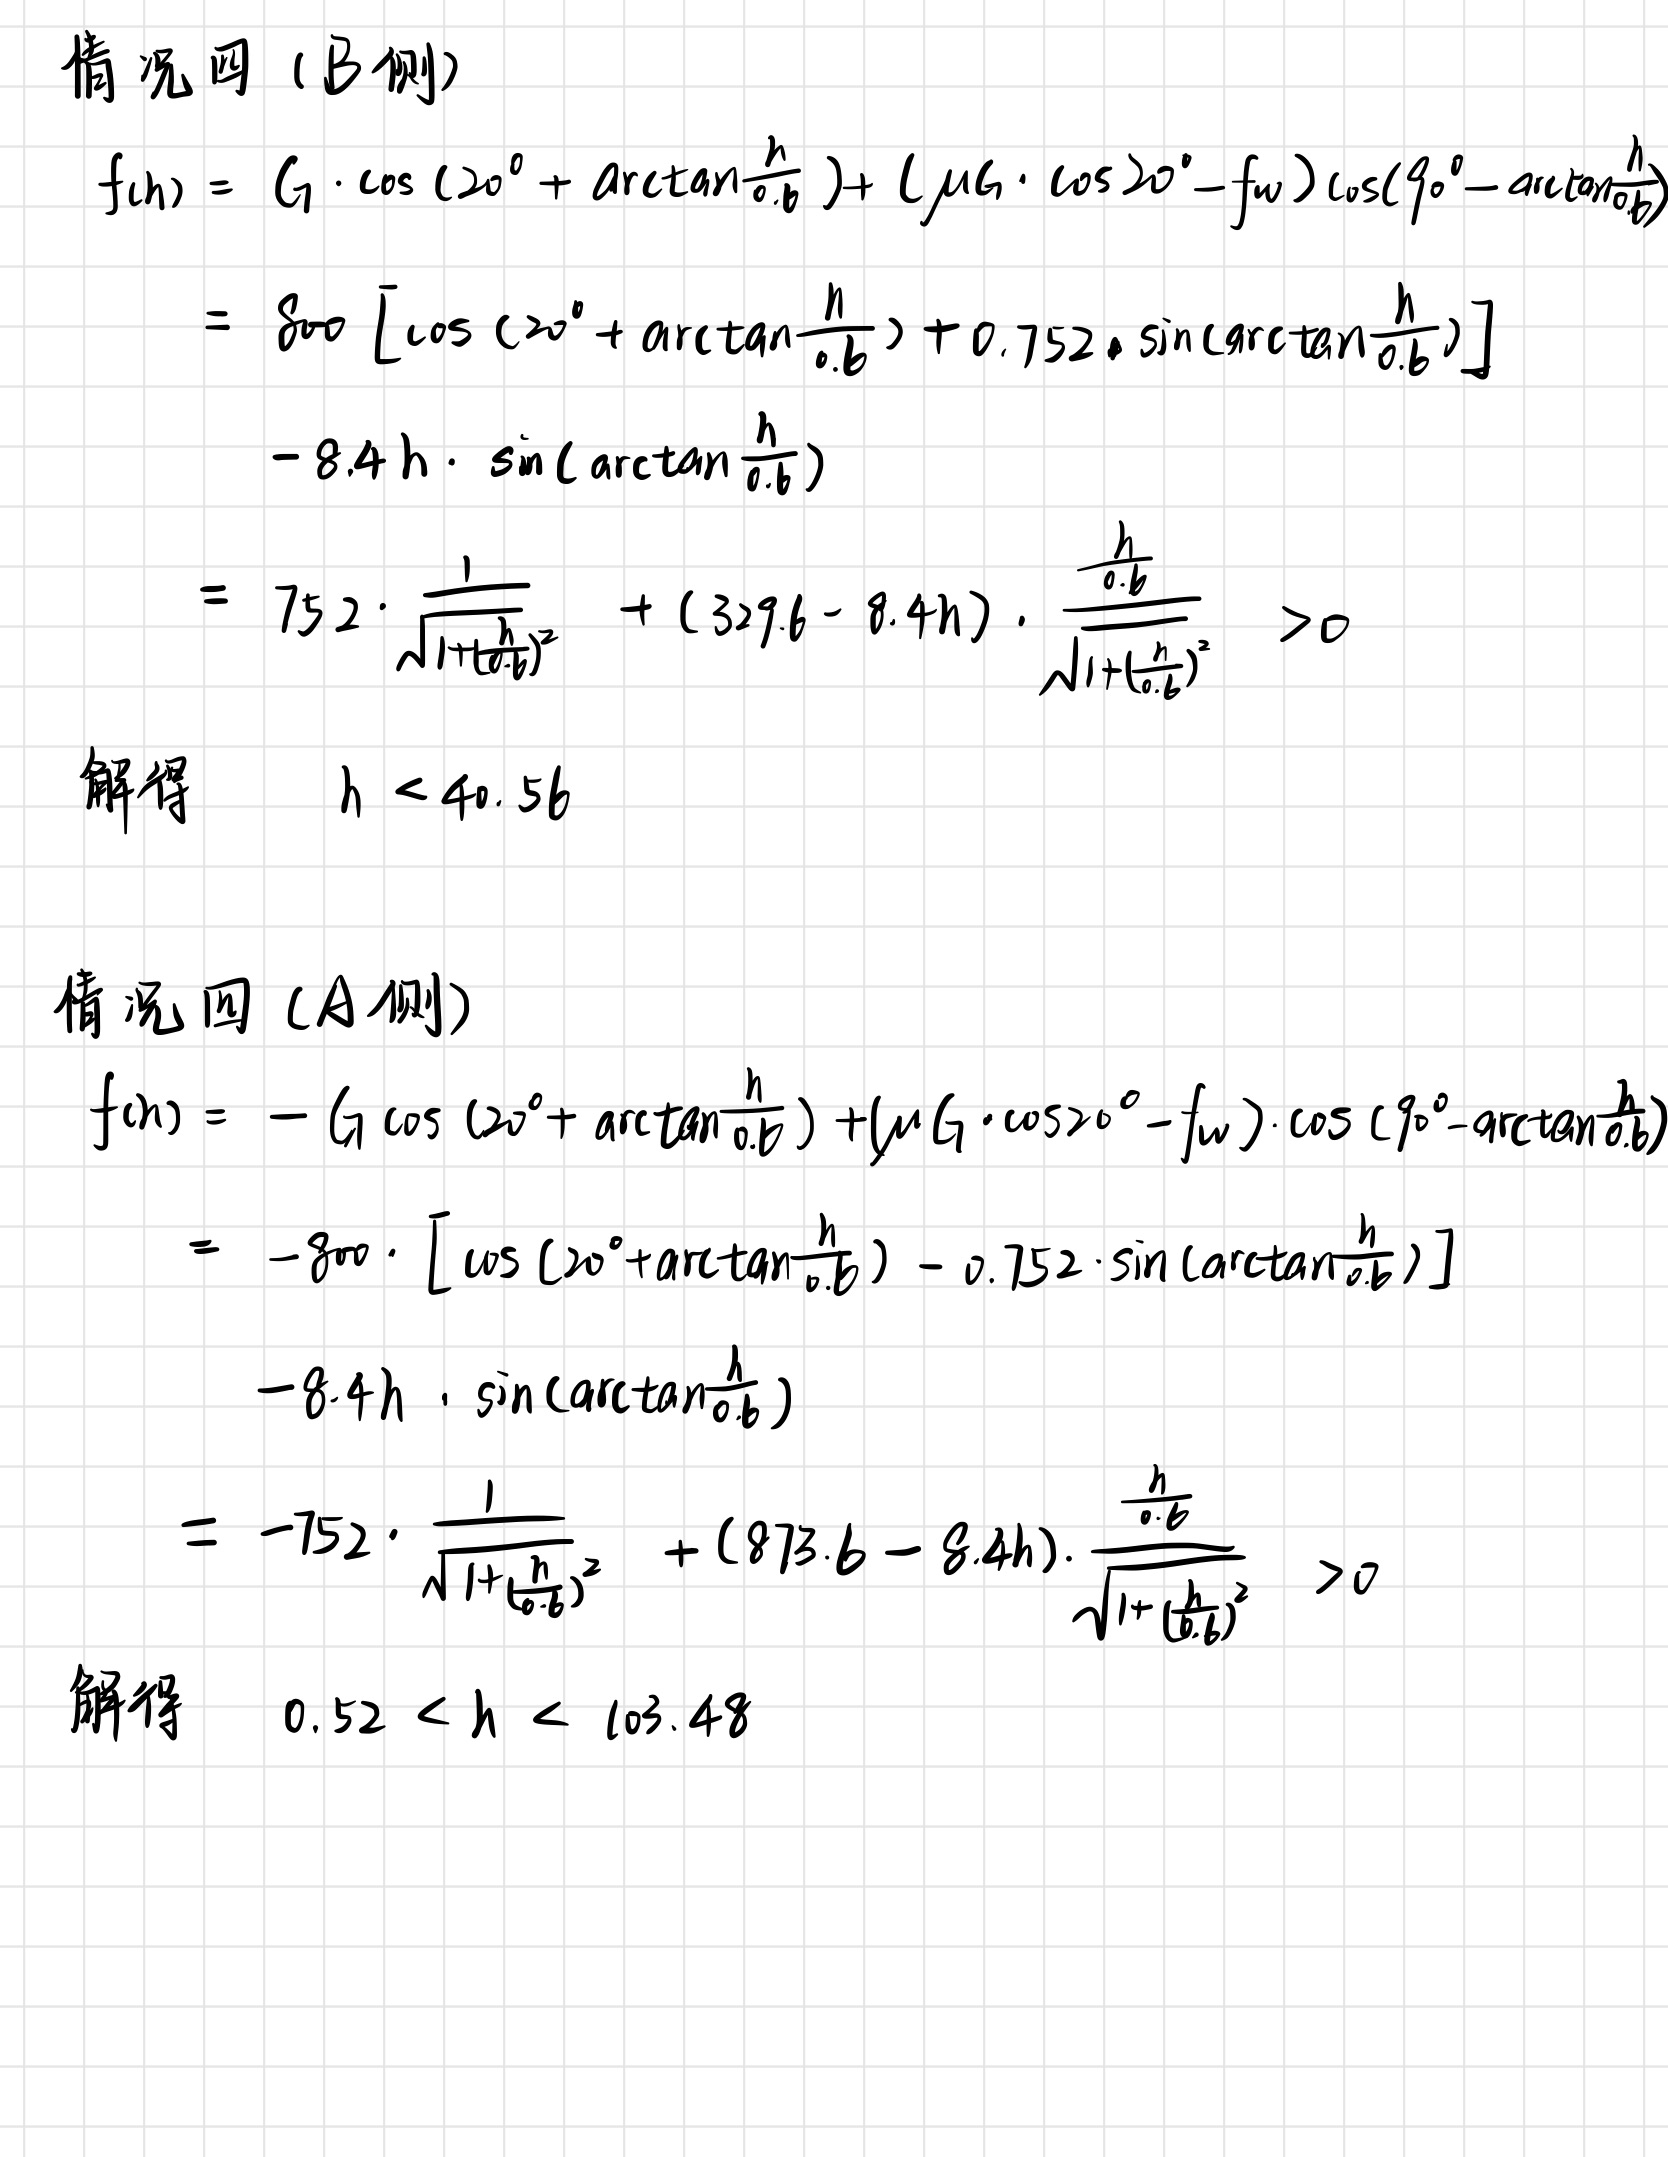 情况四 (B侧)
f(h) = G · cos (20° + arctan h/0.6) + (μG · cos20° − fw) cos(90° − arctan h/0.6)
= 800 [cos (20° + arctan h/0.6) + 0.752 · sin(arctan h/0.6)]
− 8.4h · sin(arctan h/0.6)
= 752 · 1/√(1+(h/0.6)²) + (329.6 − 8.4h) · (h/0.6)/√(1+(h/0.6)²) >0
解得 h < 40.56
情况四 (A侧)
f(h) = − G cos (20° + arctan h/0.6) + (μG · cos20° − fw) · cos (90° − arctan h/0.6)
= −800 · [cos (20° + arctan h/0.6) − 0.752 · sin (arctan h/0.6)]
−8.4h · sin(arctan h/0.6)
= −752 · 1/√(1+(h/0.6)²) + (873.6 − 8.4h) · (h/0.6)/√(1+(h/0.6)²) >0
解得 0.52 < h < 103.48